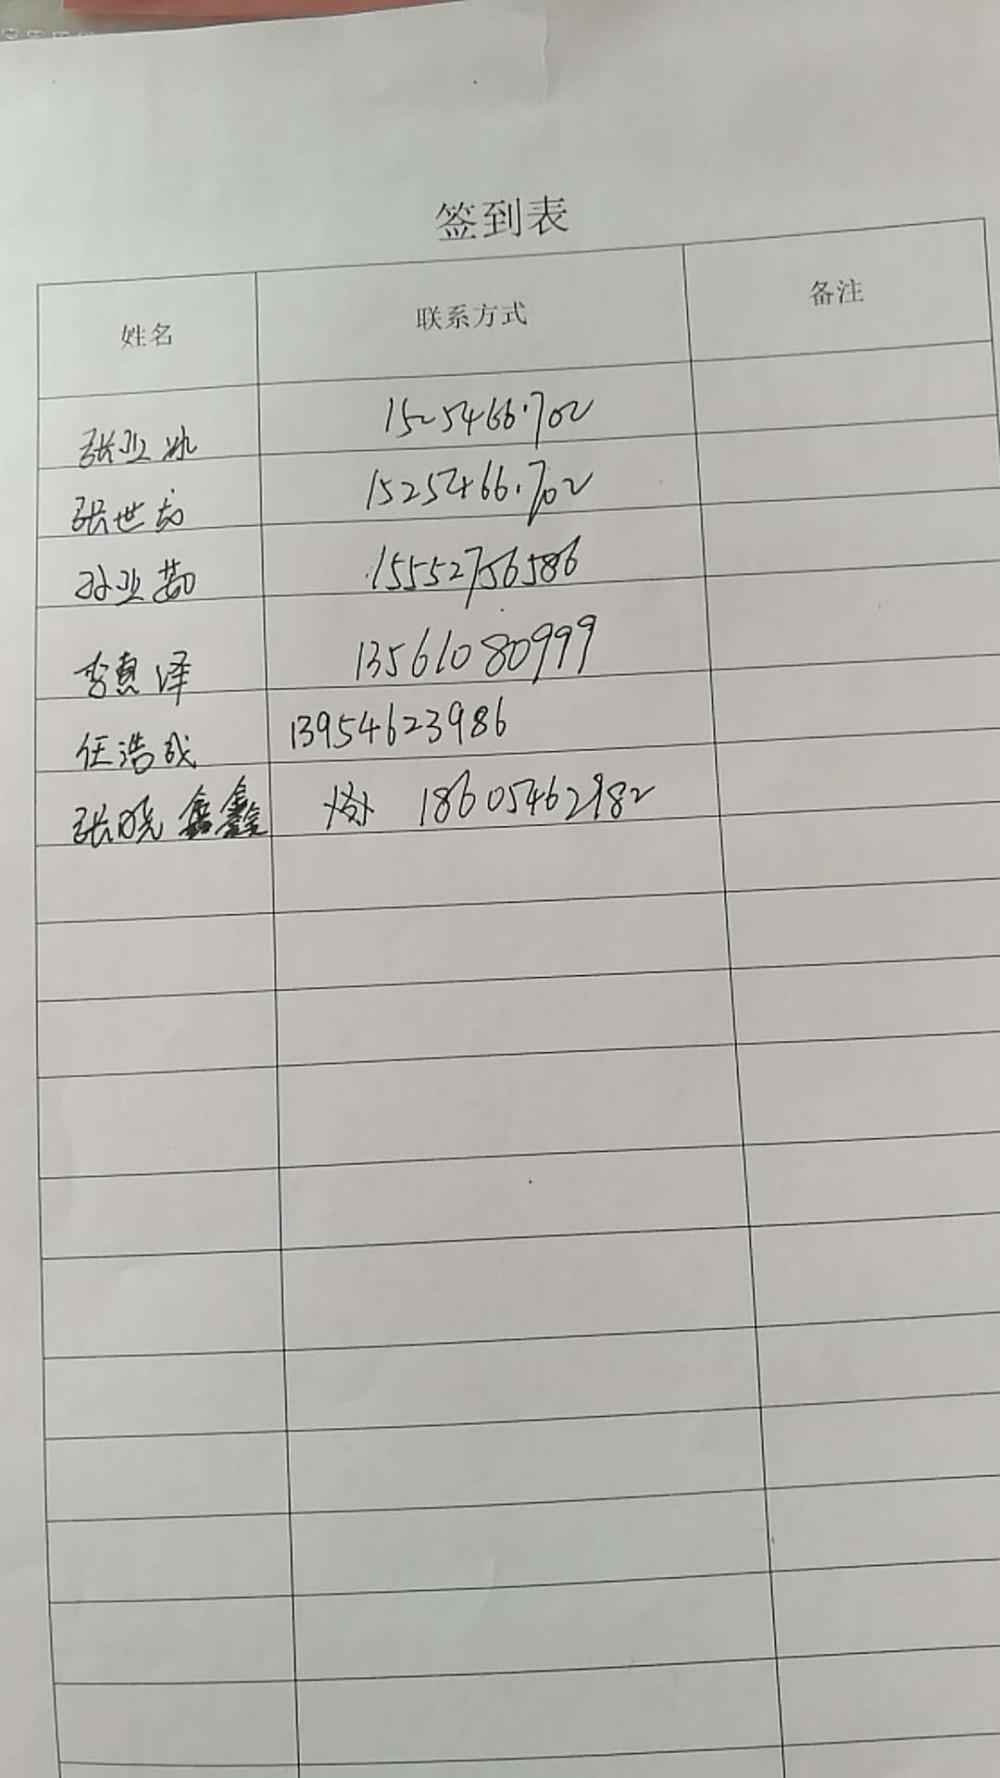 签到表
姓名 联系方式 备注
张亚冰 1525466.702
张世龙 1525466.702
孙亚茹 15552756586
李真泽 13561080999
任浩成 13954623986
张晓鑫 18605462982